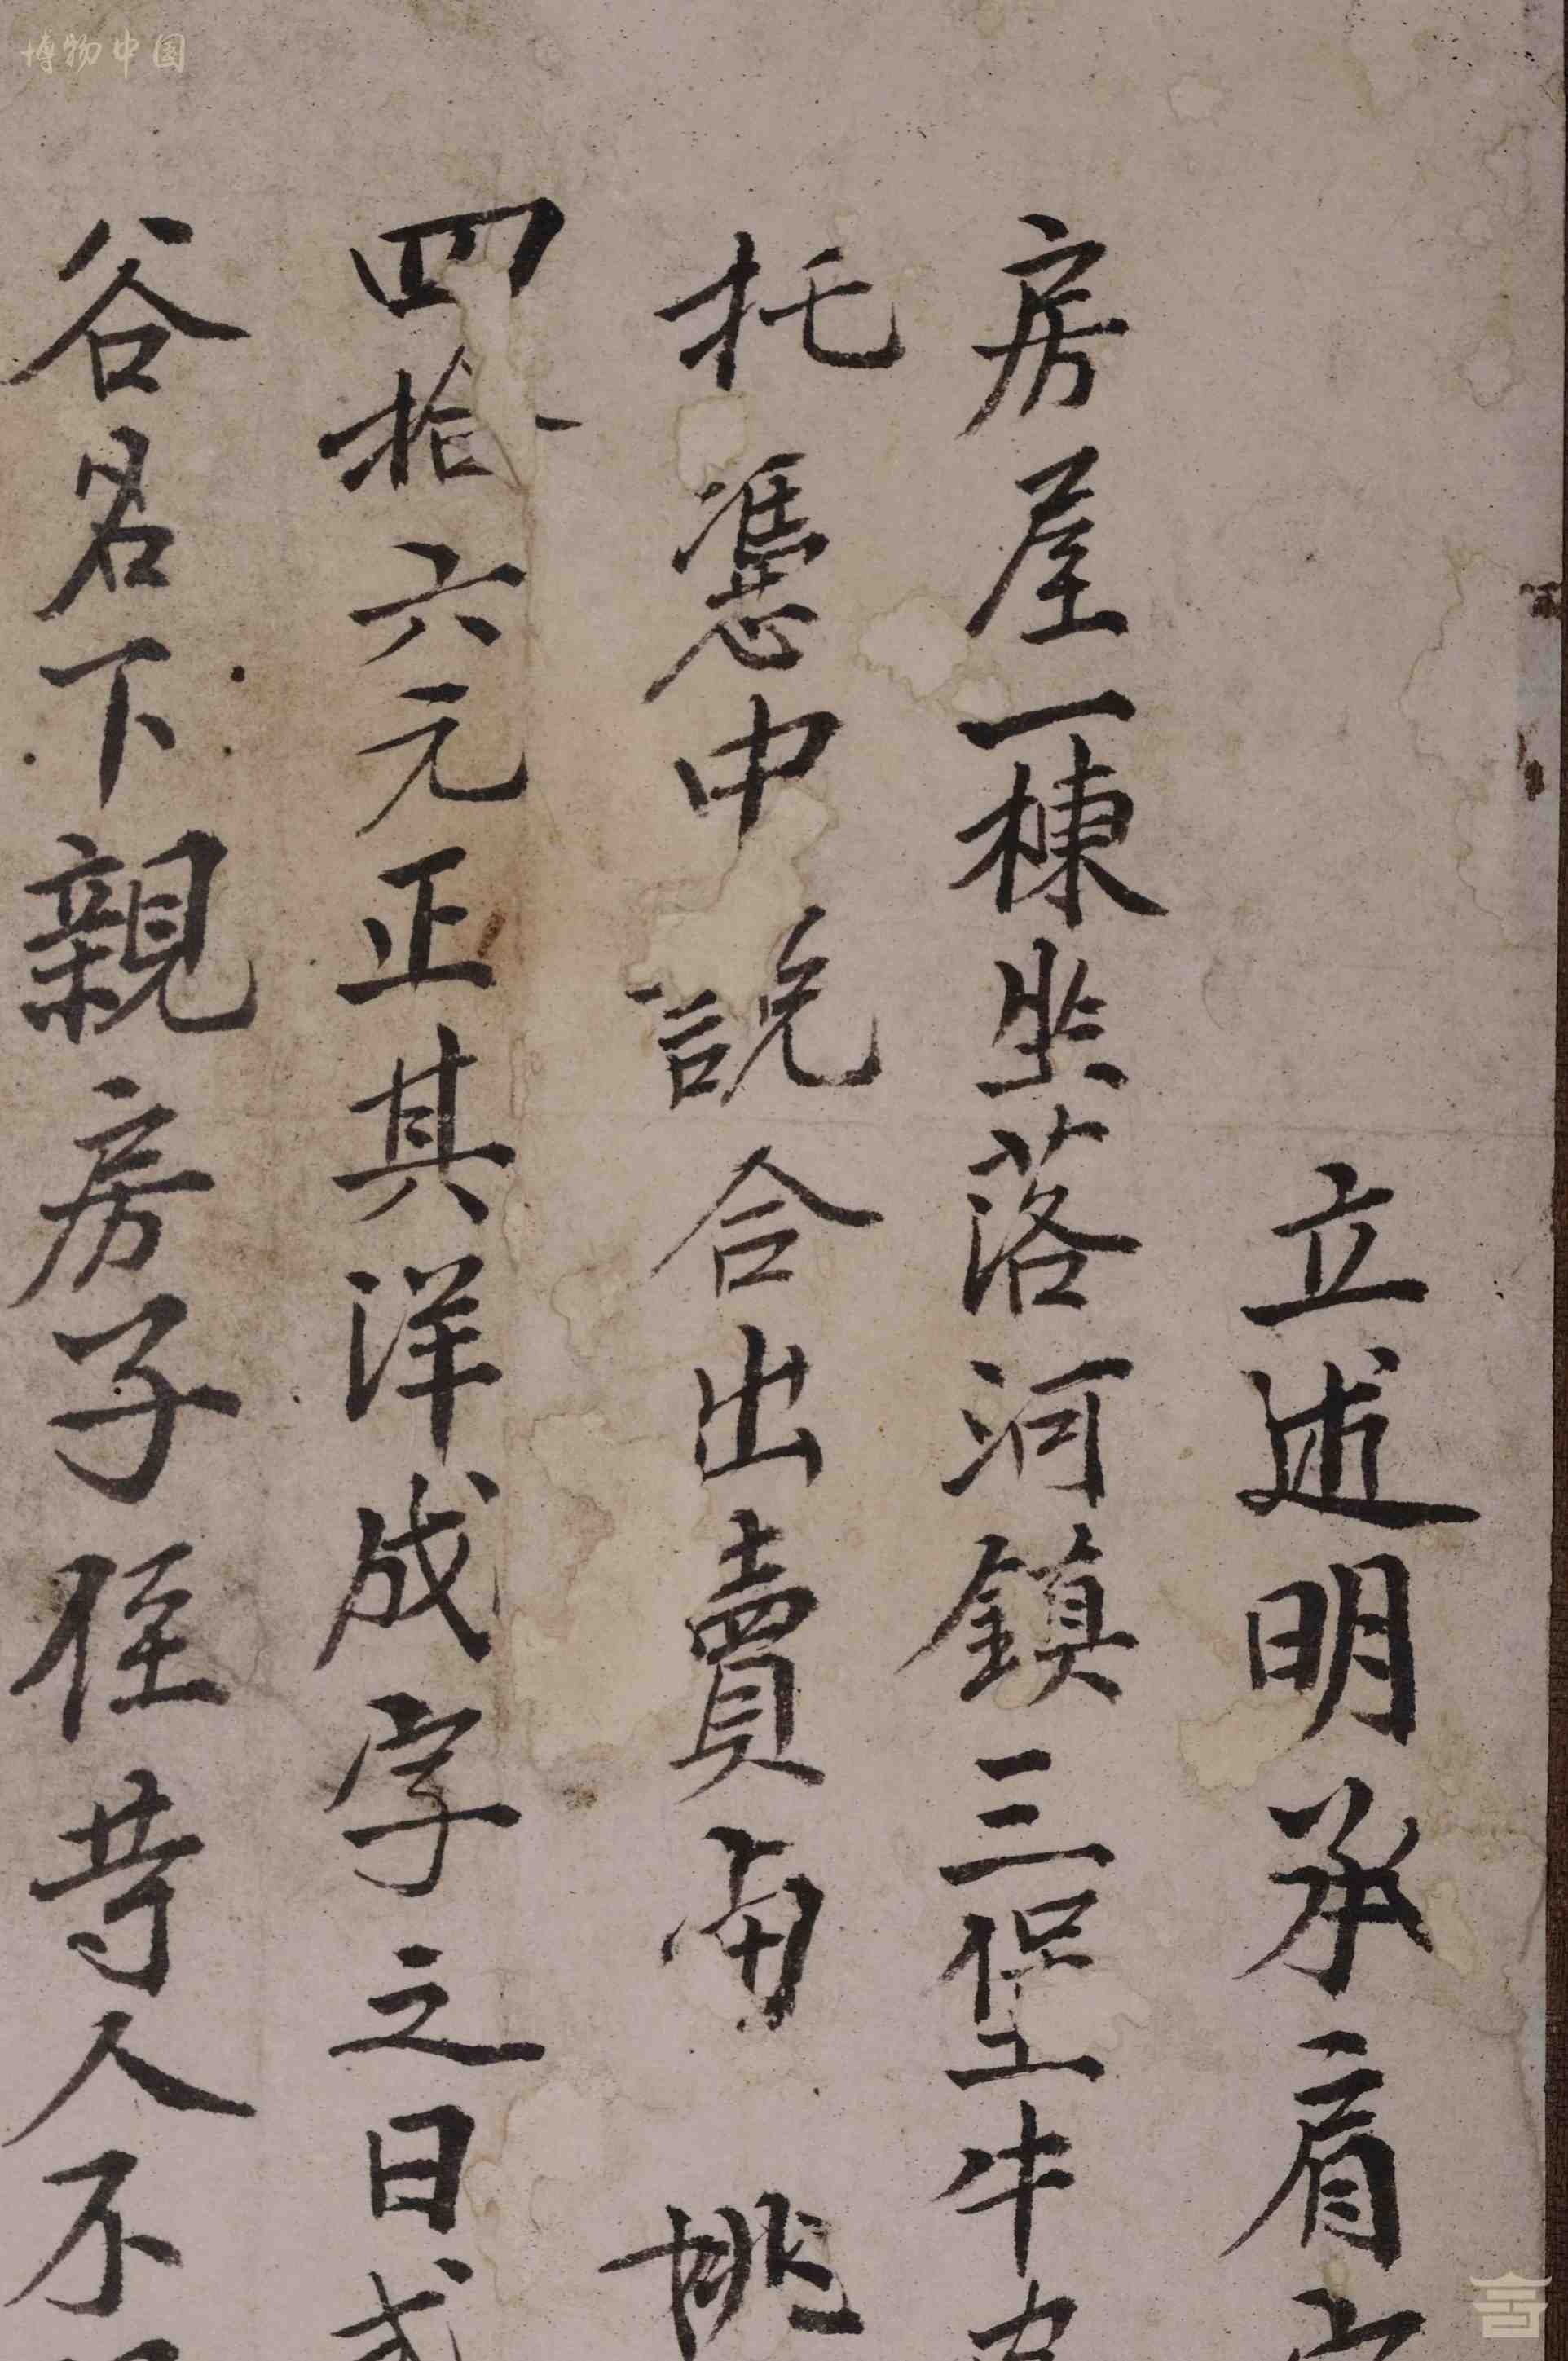 博物中国
立述明承肩
房屋一棟坐落河鎮三保上牛
托憑中說合出賣與姚
四拾六元正其洋成字之日
谷名下親房子侄等人不